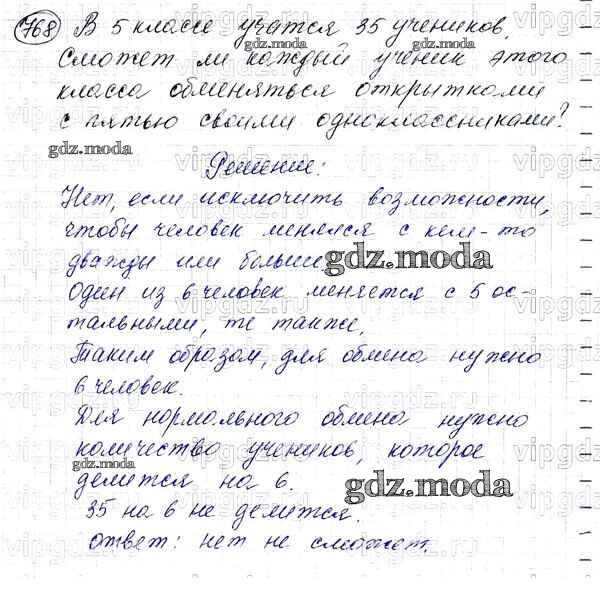 768 В 5 классе учатся 35 учеников.
gdz.moda
Сможет ли каждый ученик этого
класса обменяться открытками
с пятью своими одноклассниками?
gdz.moda
Решение:
Нет, если исключить возможности,
чтобы человек менялся с кем-то
дважды или больше
gdz.moda
Один из 6 человек меняется с 5 ос-
тальными, те также.
Таким образом, для обмена нужно
6 человек.
Для нормального обмена нужно
количество учеников, которое
gdz.moda
делится на 6.
gdz.moda
35 на 6 не делится.
ответ: нет не сможет.